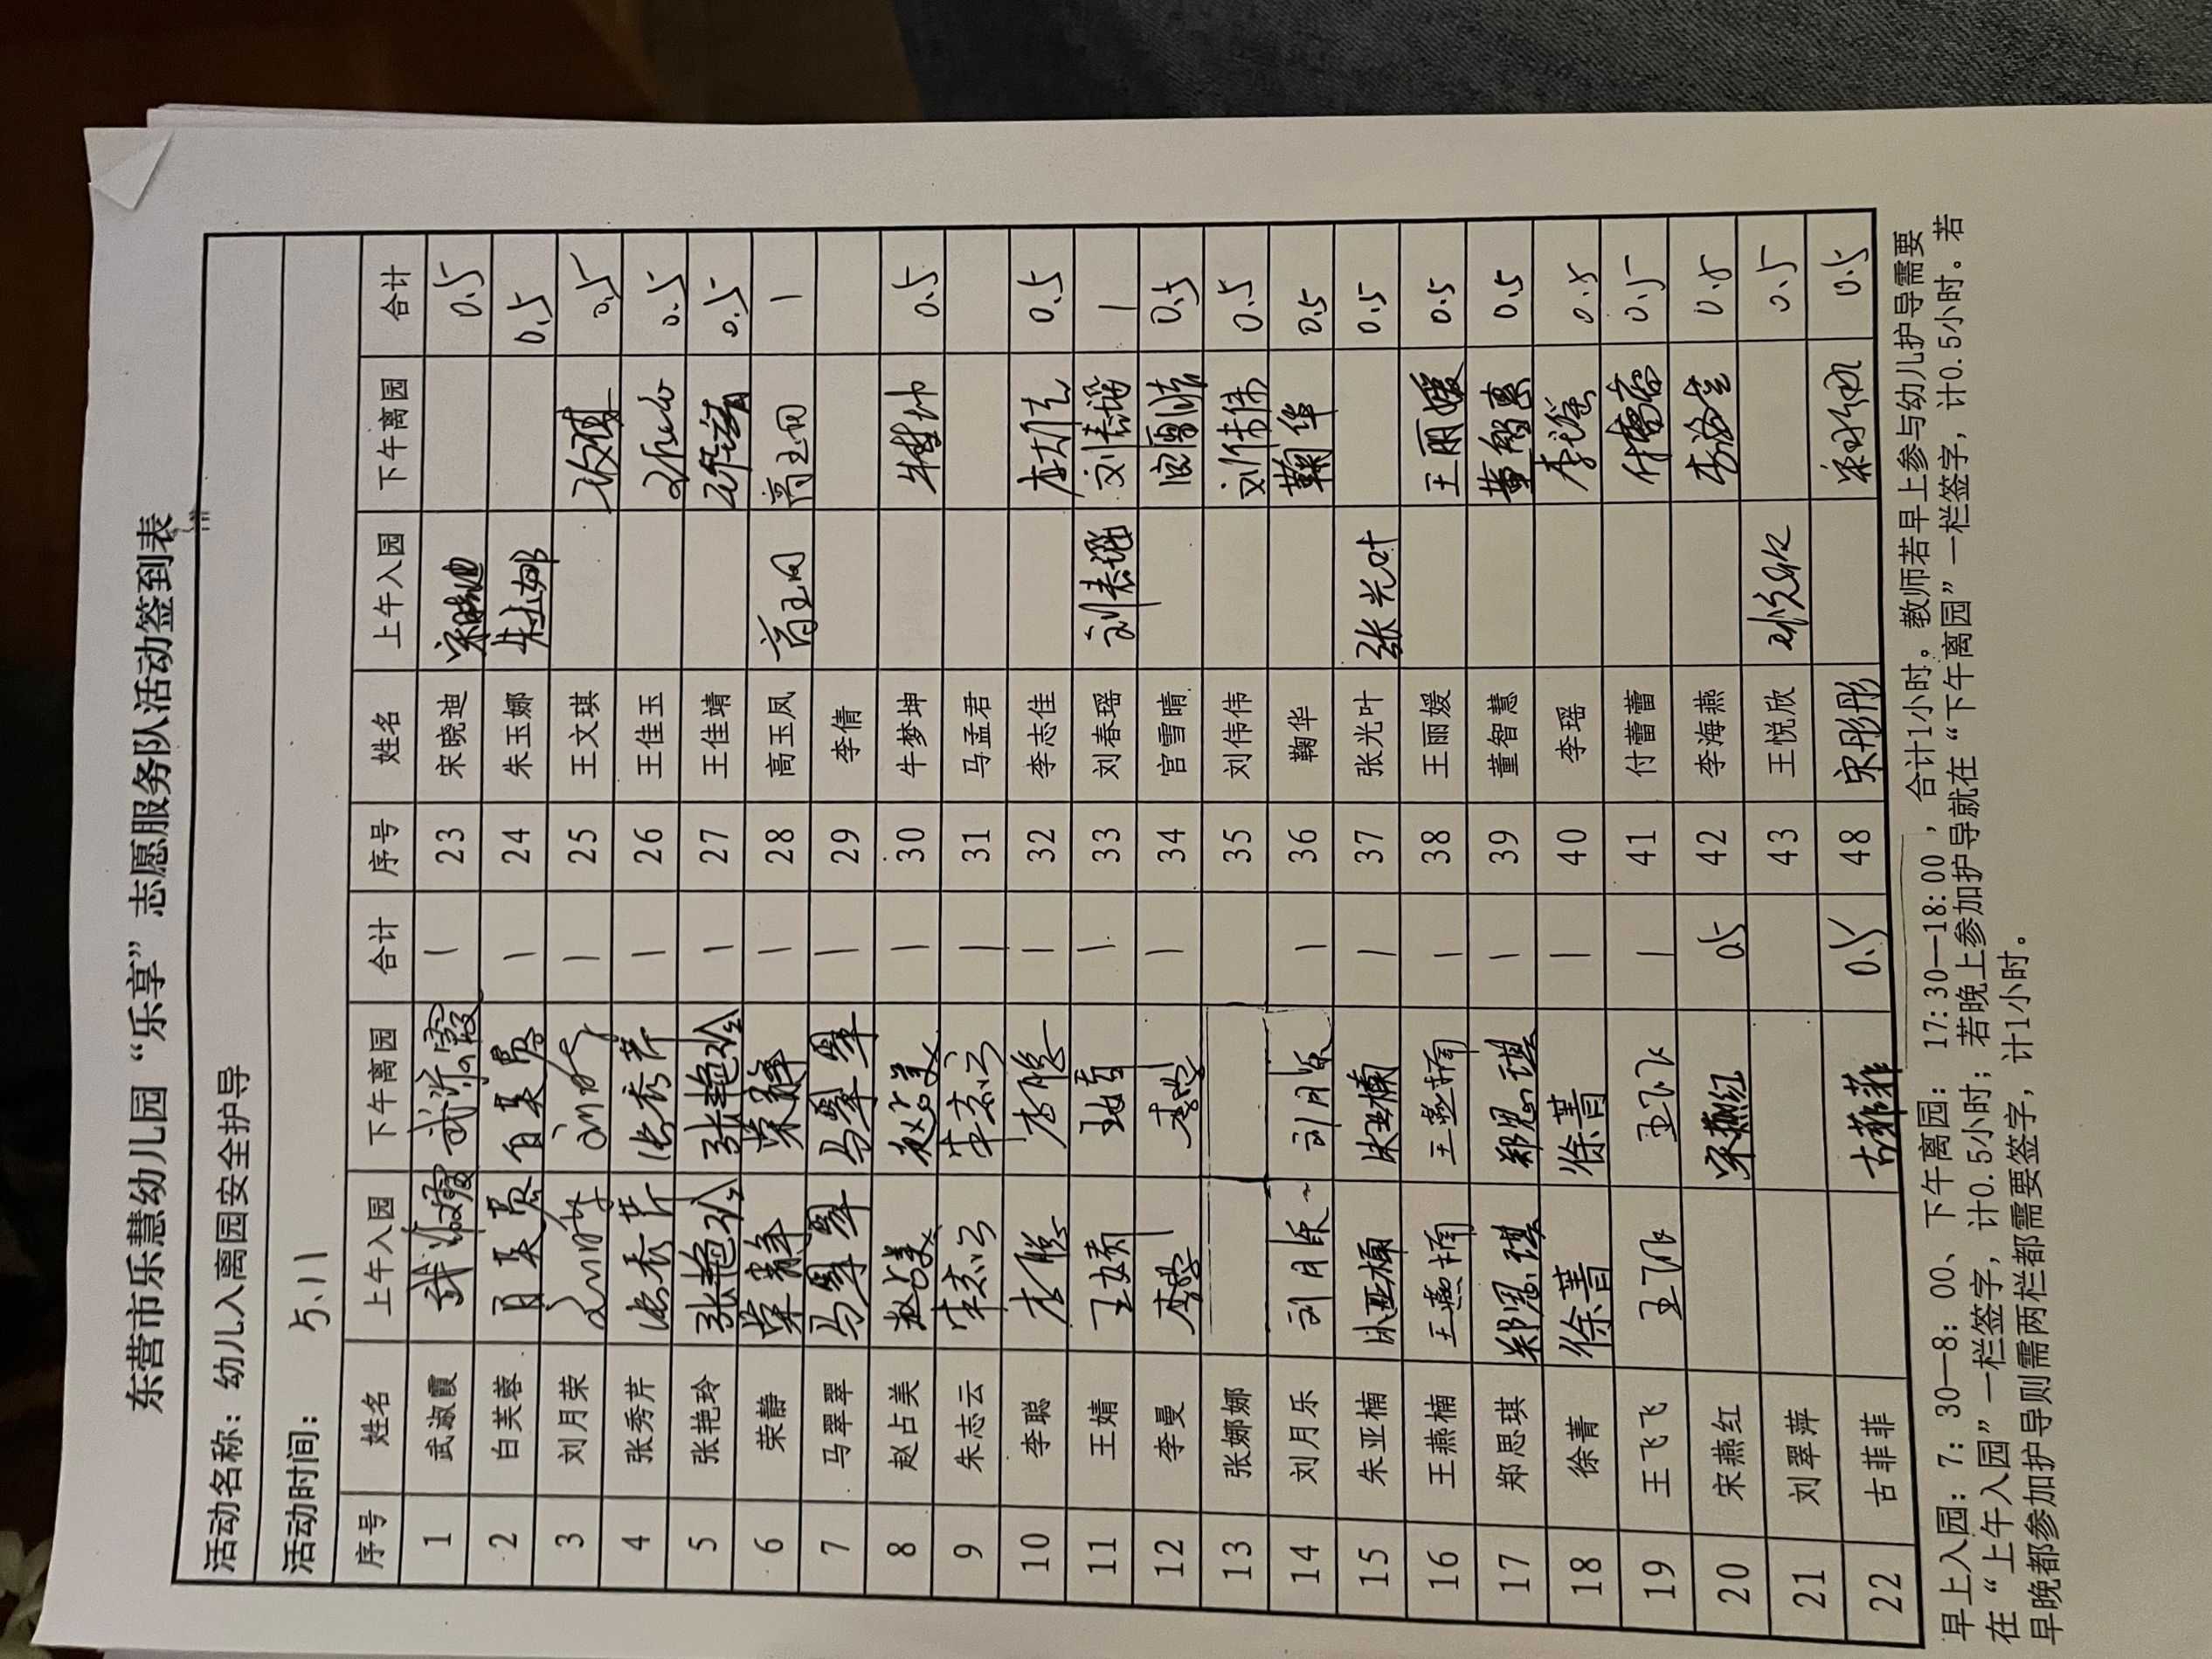 东营市乐慧幼儿园“乐享”志愿服务队活动签到表
活动名称：幼儿入离园安全护导
活动时间： 5.11
序号 姓名 上午入园 下午离园 合计 序号 姓名 上午入园 下午离园 合计
1 武淑霞 武淑霞 武淑霞 1 23 宋晓迪 宋晓迪 0.5
2 白芙蓉 白芙蓉 白芙蓉 1 24 朱玉娜 朱玉娜 0.5
3 刘月荣 1 25 王文琪 0.5
4 张秀芹 张秀芹 张秀芹 1 26 王佳玉 0.5
5 张艳玲 张艳玲 张艳玲 1 27 王佳靖 0.5
6 荣静 荣静 荣静 1 28 高玉凤 高玉凤 高玉凤 1
7 马翠翠 马翠翠 马翠翠 1 29 李倩
8 赵占美 赵占美 赵占美 1 30 牛梦坤 牛梦坤 0.5
9 朱志云 朱志云 朱志云 1 31 马孟君
10 李聪 李聪 李聪 1 32 李志佳 0.5
11 王婧 王婧 王婧 1 33 刘春瑶 刘春瑶 刘春瑶 1
12 李曼 李曼 李曼 1 34 宫雪晴 宫雪晴 0.5
13 张娜娜 35 刘伟伟 刘伟伟 0.5
14 刘月乐 刘月乐 刘月乐 1 36 鞠华 鞠华 0.5
15 朱亚楠 朱亚楠 朱亚楠 1 37 张光叶 张光叶 0.5
16 王燕楠 王燕楠 王燕楠 1 38 王丽媛 王丽媛 0.5
17 郑思琪 郑思琪 郑思琪 1 39 董智慧 董智慧 0.5
18 徐菁 徐菁 徐菁 1 40 李瑶 李瑶 0.5
19 王飞飞 王飞飞 王飞飞 1 41 付蕾蕾 付蕾蕾 0.5
20 宋燕红 宋燕红 0.5 42 李海燕 李海燕 0.5
21 刘翠萍 43 王悦欣 0.5
22 古菲菲 古菲菲 0.5 48 宋彤彤 0.5
早上入园：7：30—8：00、下午离园：17:30—18:00，合计1小时。教师若早上参与幼儿护导需要
在“上午入园”一栏签字，计0.5小时；若晚上参加护导就在“下午离园”一栏签字，计0.5小时。若
早晚都参加护导则需两栏都需要签字，计1小时。